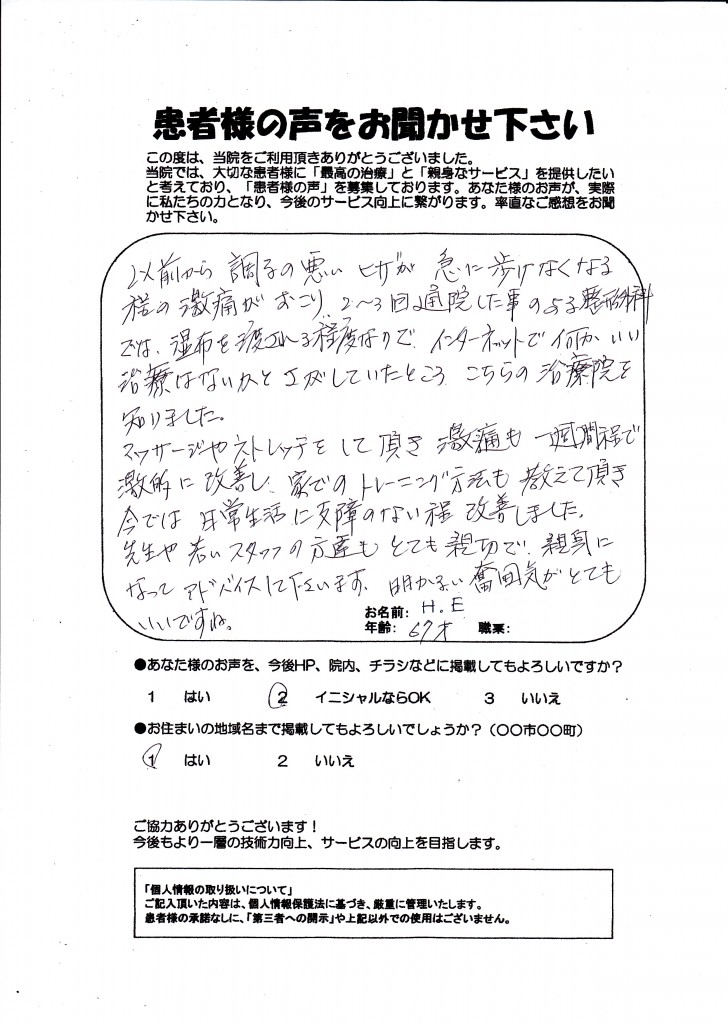 患者様の声をお聞かせ下さい
この度は、当院をご利用頂きありがとうございました。
当院では、大切な患者様に「最高の治療」と「親身なサービス」を提供したい
と考えており、「患者様の声」を募集しております。あなた様のお声が、実際
に私たちの力となり、今後のサービス向上に繋がります。率直なご感想をお聞
かせ下さい。
以前から調子の悪いヒザが急に歩けなくなる
程の激痛がおこり、2〜3回通院した事のある整形外科
では、湿布を渡される程度なので、インターネットで何かいい
治療はないかとさがしていたところ こちらの治療院を
知りました。
マッサージやストレッチをして頂き 激痛も一週間程で
激的に改善し、家でのトレーニング方法も教えて頂き
今では 日常生活に支障のない程 改善しました。
先生や若いスタッフの方達もとても親切で、親身に
なってアドバイスして下さいます。明かるい奮囲気がとても
いいですね。
お名前: H.E
年齢: 67才 職業:
●あなた様のお声を、今後HP、院内、チラシなどに掲載してもよろしいですか?
1 はい 2 イニシャルならOK 3 いいえ
●お住まいの地域名まで掲載してもよろしいでしょうか?(〇〇市〇〇町)
1 はい 2 いいえ
ご協力ありがとうございます!
今後もより一層の技術力向上、サービスの向上を目指します。
「個人情報の取り扱いについて」
ご記入頂いた内容は、個人情報保護法に基づき、厳重に管理いたします。
患者様の承諾なしに、「第三者への開示」や上記以外での使用はございません。